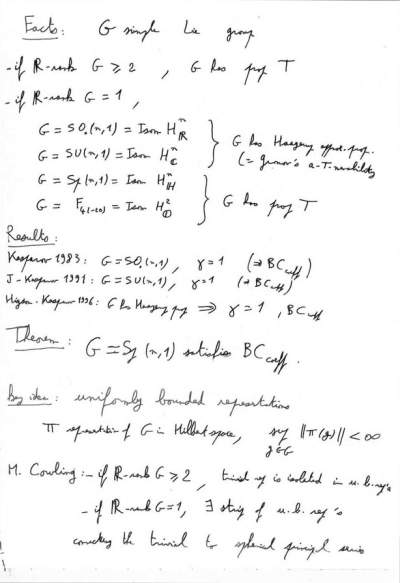 Facts: G simple Lie group
- if ℝ-rank G ⩾ 2, G has prop T
- if ℝ-rank G = 1,
G = SO₀(n,1) = Isom H^n_ℝ
G = SU(n,1) = Isom H^n_ℂ
} G has Haagerup approx. prop. (= Gromov's a-T-menability)
G = Sp(n,1) = Isom H^n_ℍ
G = F₄(-20) = Isom H^2_𝕆
} G has prop T
Results:
Kasparov 1983: G = SO₀(n,1), γ = 1 (⇒ BC_coeff)
J-Kasparov 1991: G = SU(n,1), γ = 1 (⇒ BC_coeff)
Higson-Kasparov 1996: G has Haagerup prop ⇒ γ = 1, BC_coeff
Theorem: G = Sp(n,1) satisfies BC_coeff.
Key idea: uniformly bounded representations
π representation of G in Hilbert space, sup_{g∈G} ‖π(g)‖ < ∞
M. Cowling: - if ℝ-rank G ⩾ 2, trivial rep is isolated in u.b. rep's
- if ℝ-rank G = 1, ∃ strip of u.b. rep's
connecting the trivial to spherical principal series